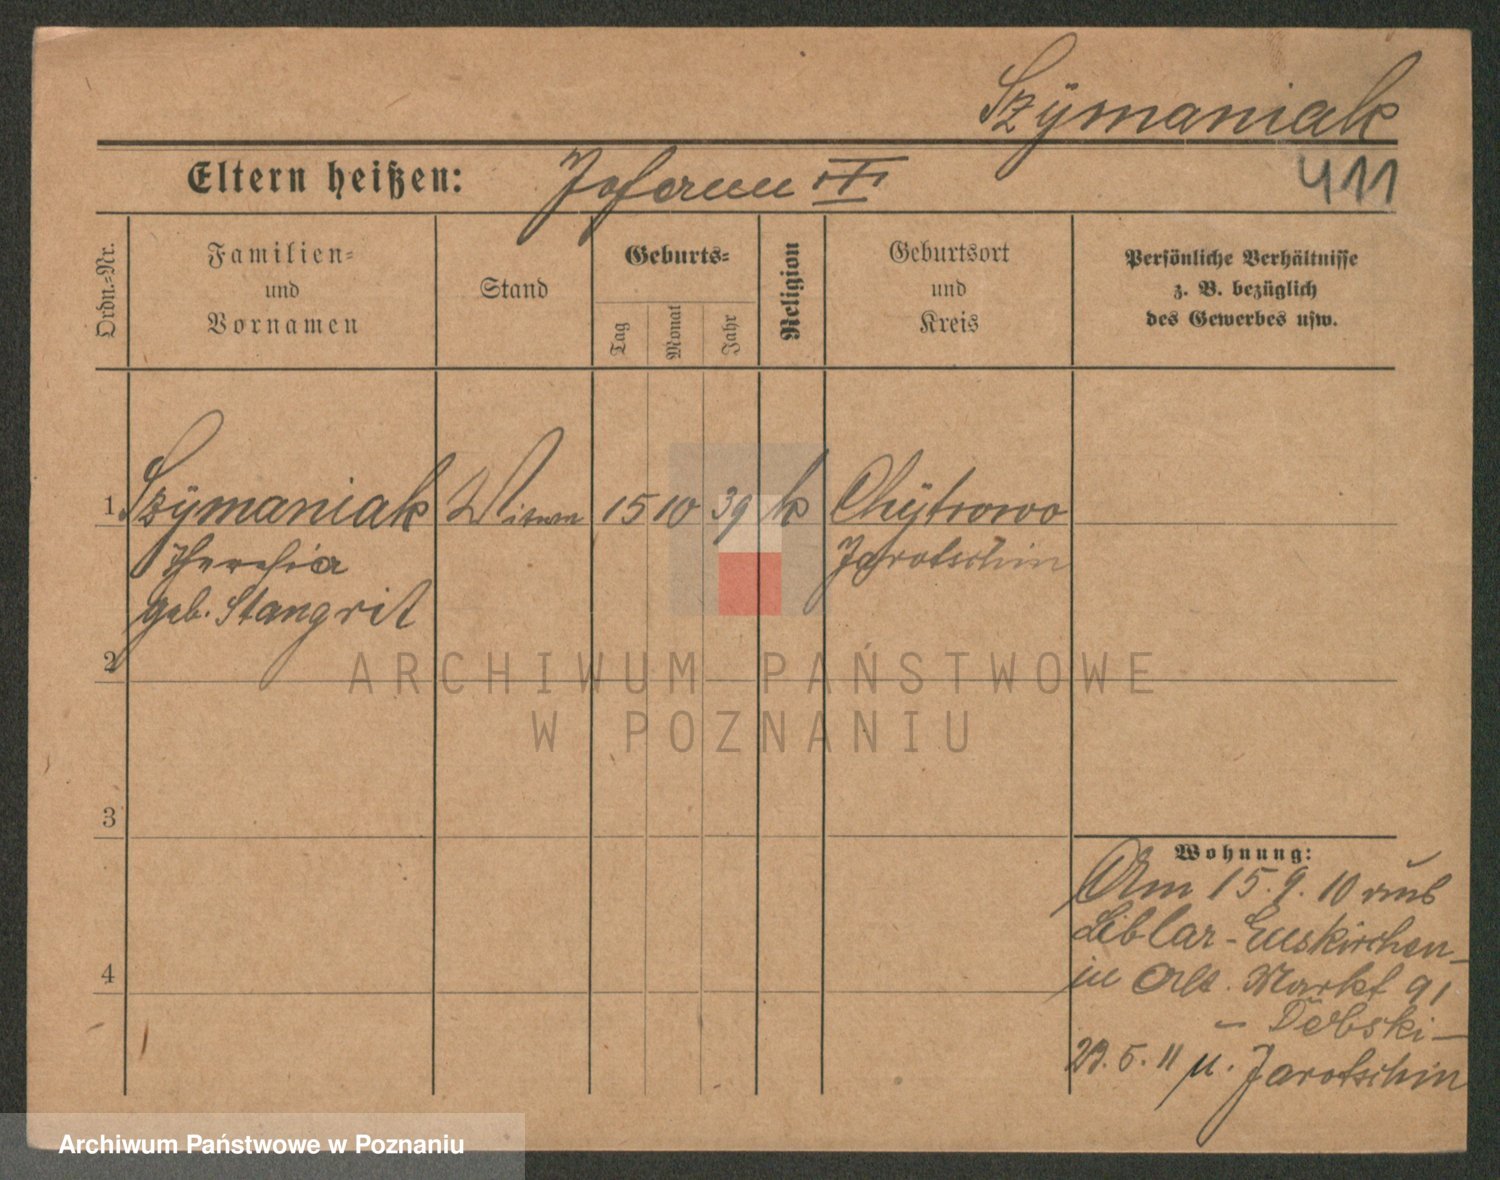 Szÿmaniak
Eltern heißen: Johann III
411
Ordn.=Nr.
Familien=
und
Vornamen
Stand
Geburts=
Tag
Monat
Jahr
Religion
Geburtsort
und
Kreis
Persönliche Verhältnisse
z. B. bezüglich
des Gewerbes usw.
1 Szÿmaniak Witwe 15 10 39 k Chÿtrowo
Theresia Jarotschin
geb. Stangrit
2
3
4
Wohnung:
Am 15.9.10 aus
Liblar-Euskirchen-
in Alt. Markt 91
- Debski -
29.5.11 n. Jarotschin
ARCHIWUM PAŃSTWOWE
W POZNANIU
Archiwum Państwowe w Poznaniu